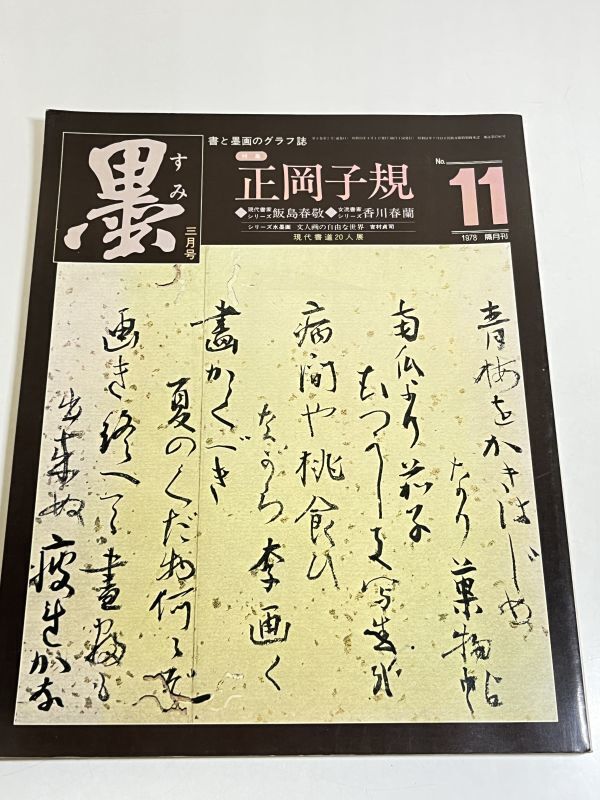 書と墨画のグラフ誌
墨
すみ
三月号
特集
正岡子規
No.
11
1978 隔月刊
◆現代書家シリーズ 飯島春敬◆女流書家シリーズ 香川春蘭
シリーズ水墨画 文人画の自由な世界 吉村貞司
現代書道20人展
青梅をかきはじめ
なり菓物帖
南瓜より茄子
むつかしき写生哉
病間や桃食ひ
ながら李画く
画かくべき
夏のくだ物何々ぞ
画き終へて昼寝も
出来ぬ疲れかな